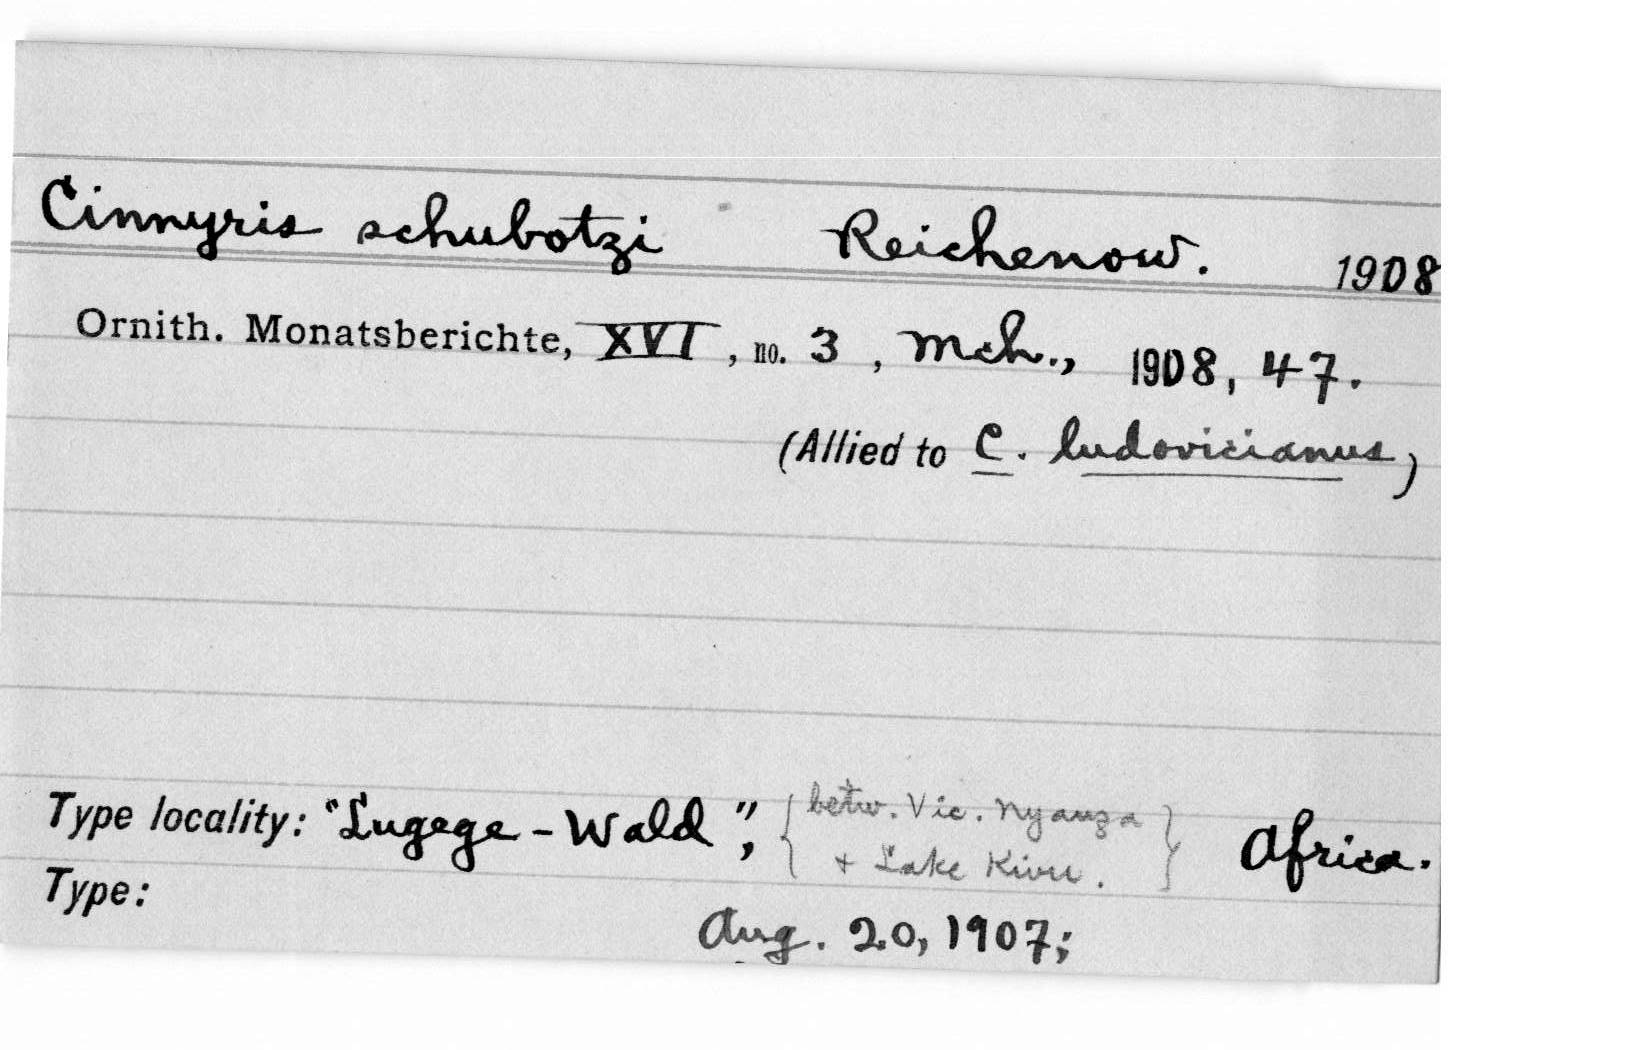 Cinnyris schubotzi Reichenow. 1908
Ornith. Monatsberichte, XVI, no. 3, Mch., 1908, 47.
(Allied to C. ludovicianus)
Type locality: "Lugege-Wald", {betw. Vic. Nyanza
+ Lake Kivu.} Africa.
Type:
Aug. 20, 1907;